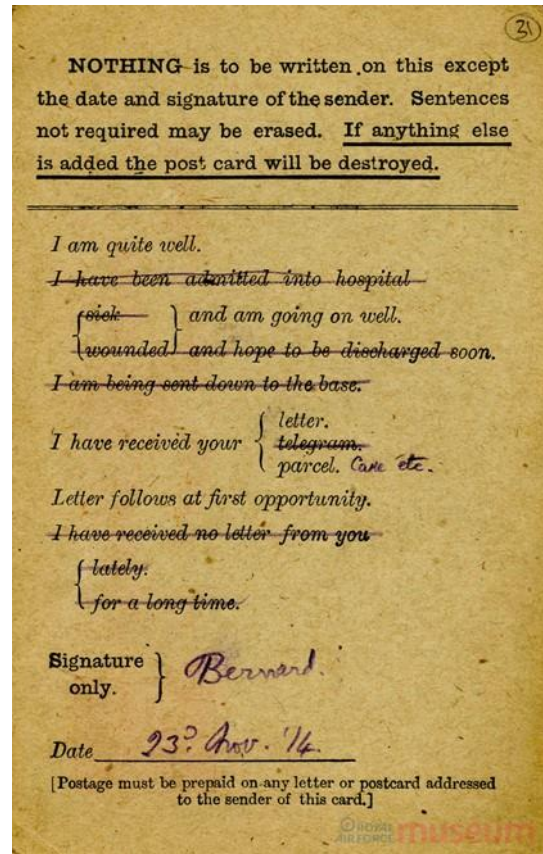 31
NOTHING is to be written on this except
the date and signature of the sender. Sentences
not required may be erased. If anything else
is added the post card will be destroyed.
I am quite well.
I have been admitted into hospital
sick and am going on well.
wounded and hope to be discharged soon.
I am being sent down to the base.
letter.
I have received your telegram.
parcel. Cake etc.
Letter follows at first opportunity.
I have received no letter from you
lately.
for a long time.
Signature
only. Bernard.
Date 23ʳᵈ Nov. '14.
[Postage must be prepaid on any letter or postcard addressed
to the sender of this card.]
© ROYAL
AIR FORCE museum